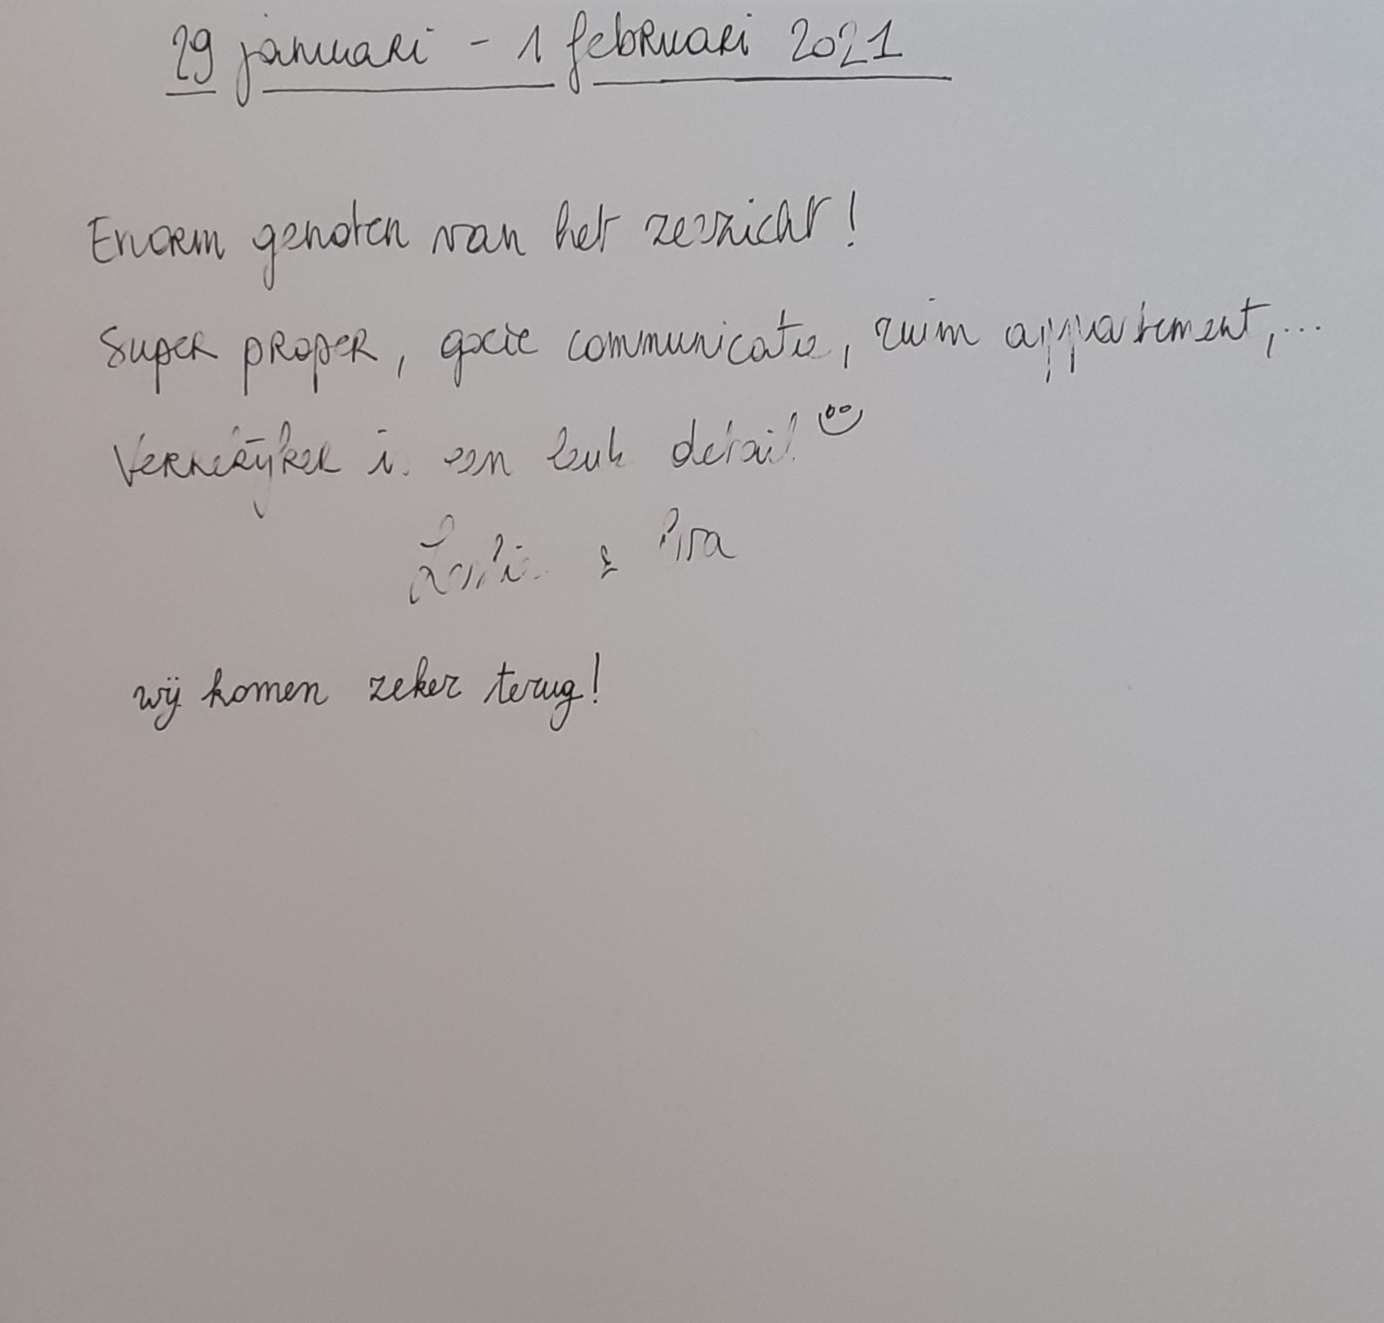 29 januari - 1 februari 2021
Enorm genoten van het zeezicht!
Super proper, goeie communicatie, ruim appartement,...
Verrekijker is een leuk detail
&
wij komen zeker terug!